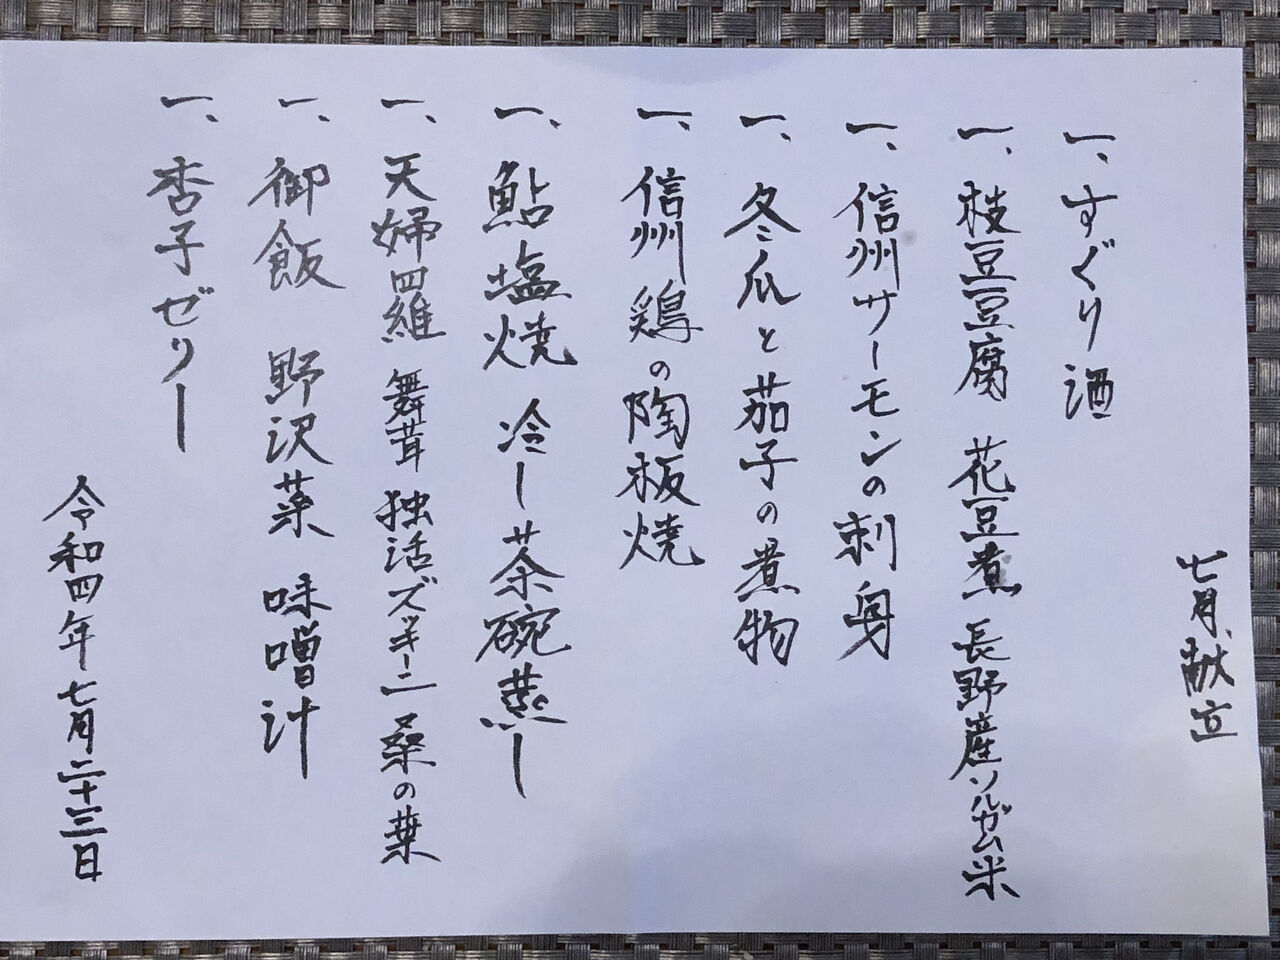 七月献立
一、すぐり酒
一、枝豆豆腐 花豆煮 長野産ソルガム米
一、信州サーモンの刺身
一、冬瓜と茄子の煮物
一、信州鶏の陶板焼
一、鮎塩焼 冷し茶碗蒸し
一、天婦羅 舞茸 独活 ズッキーニ 桑の葉
一、御飯 野沢菜 味噌汁
一、杏子ゼリー
令和四年七月二十三日